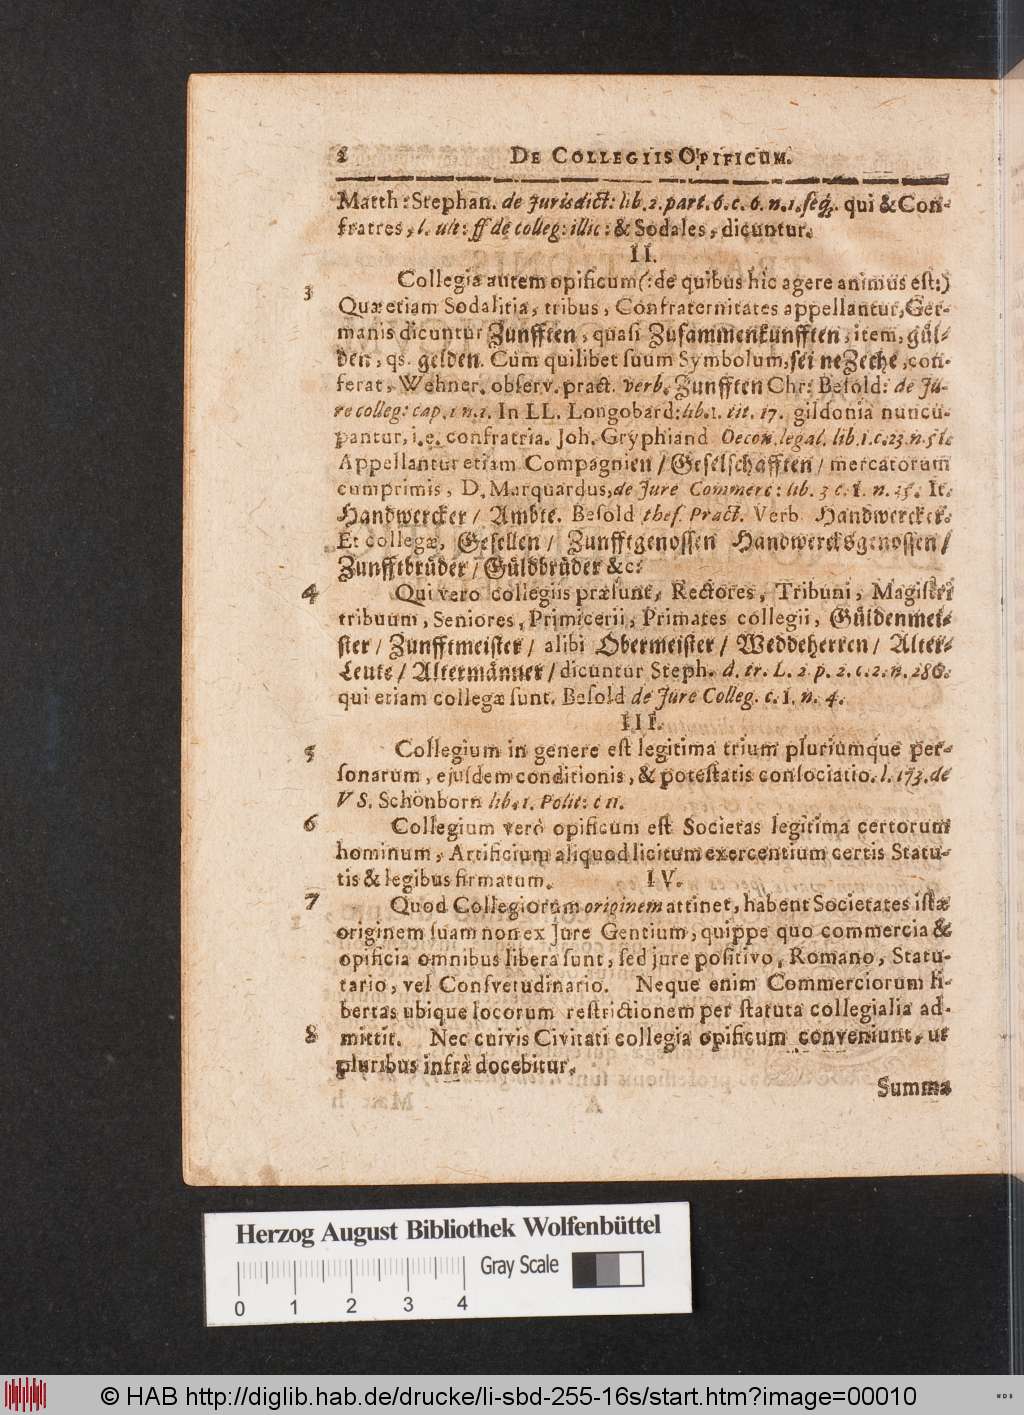 2 DE COLLEGIIS OPIFICUM.
Matth: Stephan. de Jurisdict: lib. 2. part. 6. c. 6. n. 1. seq. qui & Con-
fratres, l. ult: ff de colleg: illic: & Sodales, dicuntur.
II.
Collegia autem opificum (: de quibus hic agere animus est:)
3 Quæ etiam Sodalitia, tribus, Confraternitates appellantur, Ger-
manis dicuntur Zunfften, quasi Zusammenkunfften, item, gül-
den, qs. gelden. Cum quilibet suum Symbolum, sei ne Zeche, con-
ferat, Wehner. observ. pract. verb. Zunfften Chr: Besold: de Ju-
re colleg: cap. 1 n. 1. In LL. Longobard: lib. 1. tit. 17. gildonia nuncu-
pantur, i. e. confratria. Joh. Gryphiand Oecon. legal. lib. 1. c. 23. n. 51.
Appellantur etiam Compagnien / Geselschafften / mercatorum
cumprimis, D. Marquardus, de Jure Commerc: lib. 3 c. 1. n. 25. It.
Handwercker / Ambte. Besold thes. Pract. Verb Handwercker.
Et collegæ, Gesellen / Zunfftgenossen Handwercksgenossen /
Zunfftbrüder / Güldbrüder &c:
4 Qui vero collegiis præsunt, Rectores, Tribuni, Magistri
tribuum, Seniores, Primicerii, Primates collegii, Güldenmei-
ster / Zunfftmeister / alibi Obermeister / Weddeherren / Alter-
Leute / Altermänner / dicuntur Steph. d. tr. L. 2 p. 2. c. 2. n. 286.
qui etiam collegæ sunt. Besold de Jure Colleg. c. 1. n. 4.
III.
5 Collegium in genere est legitima trium pluriumque per-
sonarum, ejusdem conditionis, & potestatis consociatio. l. 173. de
V S. Schönborn lib. 1. Polit: c 11.
6 Collegium verò opificum est Societas legitima certorum
hominum, Artificium aliquod licitum exercentium certis Statu-
tis & legibus firmatum. IV.
7 Quod Collegiorum originem attinet, habent Societates istæ
originem suam non ex Jure Gentium, quippe quo commercia &
opificia omnibus libera sunt, sed jure positivo, Romano, Statu-
tario, vel Consvetudinario. Neque enim Commerciorum li-
bertas ubique locorum restrictionem per statuta collegialia ad-
8 mittit. Nec cuivis Civitati collegia opificum conveniunt, ut
pluribus infrà docebitur.
Summa
Herzog August Bibliothek Wolfenbüttel
Gray Scale
0 1 2 3 4
© HAB http://diglib.hab.de/drucke/li-sbd-255-16s/start.htm?image=00010
WDB